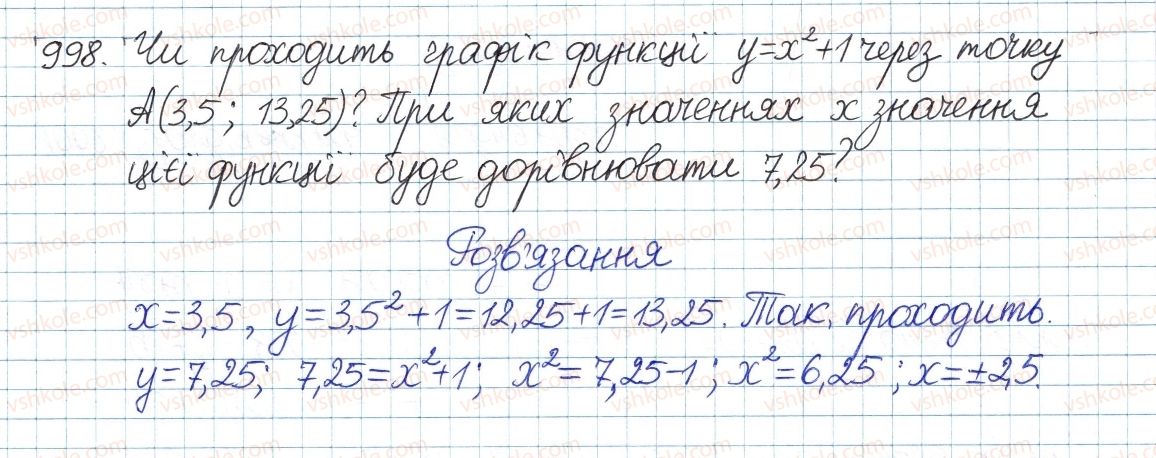 998. Чи проходить графік функції y=x²+1 через точку
А(3,5; 13,25)? При яких значеннях x значення
цієї функції буде дорівнювати 7,25?
Розв'язання
x=3,5, y=3,5²+1=12,25+1=13,25. Так, проходить.
y=7,25; 7,25=x²+1; x²=7,25-1; x²=6,25; x=±2,5.